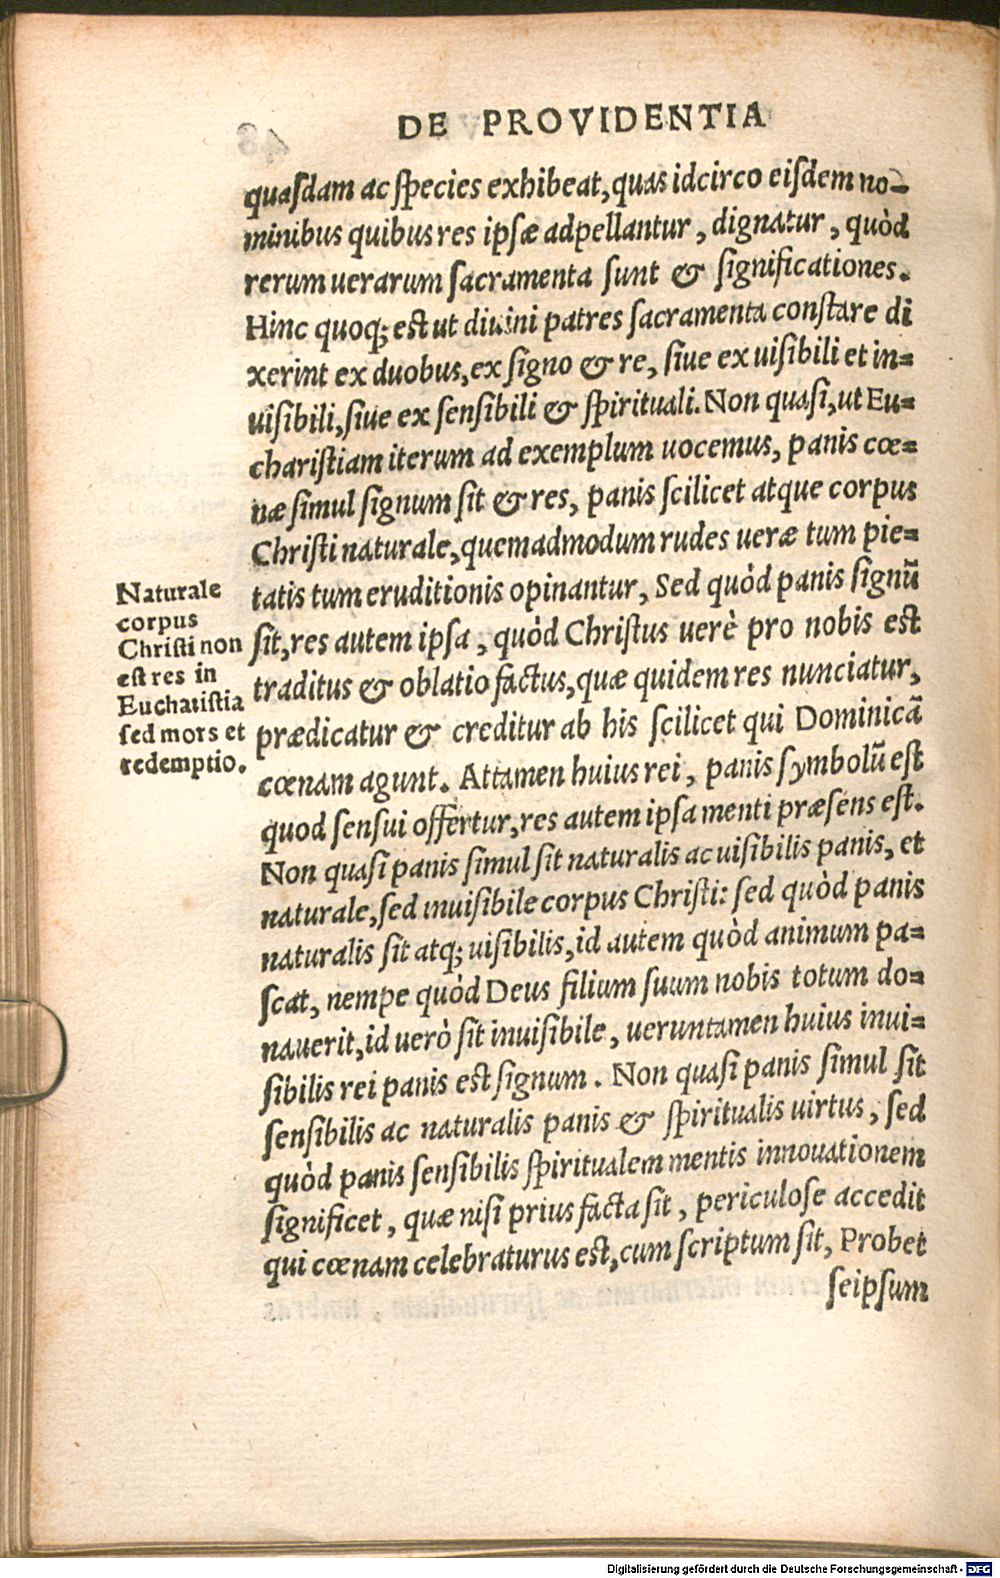 DE PROVIDENTIA
quasdam ac species exhibeat, quas idcirco eisdem no-
minibus quibus res ipsæ adpellantur, dignatur, quòd
rerum uerarum sacramenta sunt & significationes.
Hinc quoq; est ut diuini patres sacramenta constare di
xerint ex duobus, ex signo & re, siue ex uisibili et in-
uisibili, siue ex sensibili & spirituali. Non quasi, ut Eu-
charistiam iterum ad exemplum uocemus, panis cœ-
næ simul signum sit & res, panis scilicet atque corpus
Christi naturale, quemadmodum rudes ueræ tum pie-
tatis tum eruditionis opinantur, Sed quòd panis signū
sit, res autem ipsa, quòd Christus uerè pro nobis est
traditus & oblatio factus, quæ quidem res nunciatur,
prædicatur & creditur ab his scilicet qui Dominicā
cœnam agunt. Attamen huius rei, panis symbolū est
quod sensui offertur, res autem ipsa menti præsens est.
Non quasi panis simul sit naturalis ac uisibilis panis, et
naturale, sed inuisibile corpus Christi: sed quòd panis
naturalis sit atq; uisibilis, id autem quòd animum pa-
scat, nempe quòd Deus filium suum nobis totum do-
nauerit, id uerò sit inuisibile, ueruntamen huius inui-
sibilis rei panis est signum. Non quasi panis simul sit
sensibilis ac naturalis panis & spiritualis uirtus, sed
quòd panis sensibilis spiritualem mentis innouationem
significet, quæ nisi prius facta sit, periculose accedit
qui cœnam celebraturus est, cum scriptum sit, Probet
seipsum
Naturale
corpus
Christi non
est res in
Eucharistia
sed mors et
redemptio.
Digitalisierung gefördert durch die Deutsche Forschungsgemeinschaft - DFG